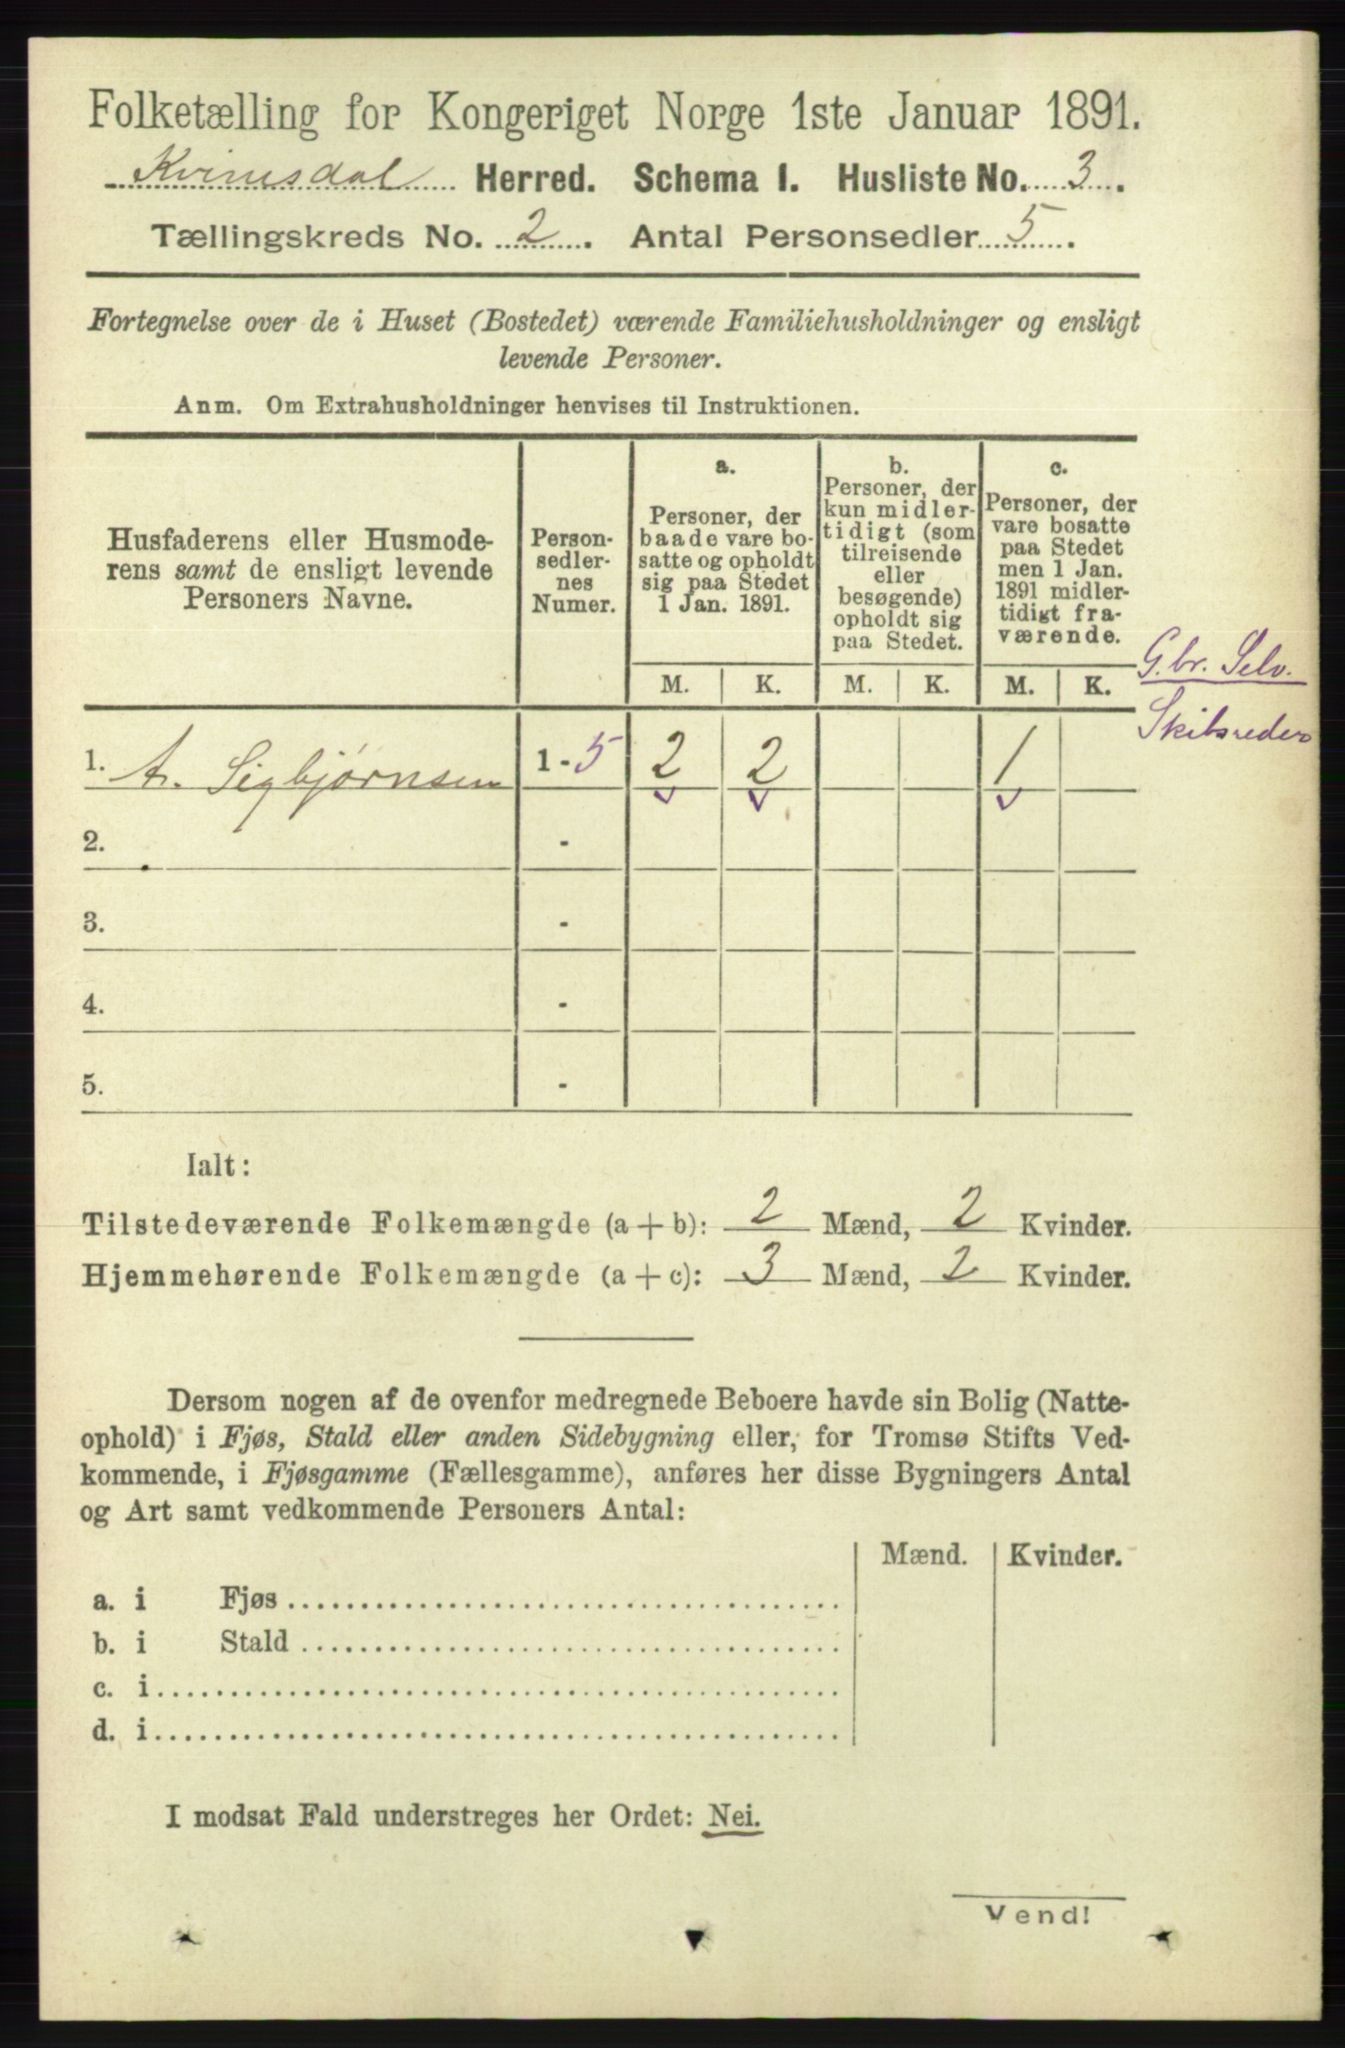 Folketælling for Kongeriget Norge 1ste Januar 1891.
Kvinesdal Herred. Schema 1. Husliste No. 3.
Tællingskreds No. 2. Antal Personsedler 5.
Fortegnelse over de i Huset (Bostedet) værende Familiehusholdninger og ensligt
levende Personer.
Anm. Om Extrahusholdninger henvises til Instruktionen.
Husfaderens eller Husmode-
rens samt de ensligt levende
Personers Navne.
Person-
sedler-
nes
Numer.
a.
Personer, der
baade vare bo-
satte og opholdt
sig paa Stedet
1 Jan. 1891.
b.
Personer, der
kun midler-
tidigt (som
tilreisende
eller
besøgende)
opholdt sig
paa Stedet.
c.
Personer, der
vare bosatte
paa Stedet
men 1 Jan.
1891 midler-
tidigt fra-
værende.
M. K. M. K. M. K.
G.br. Selv.
Skibsreder
1. A. Sigbjørnsen 1-5 2 2 1
2. -
3. -
4. -
5. -
Ialt:
Tilstedeværende Folkemængde (a+b): 2 Mænd, 2 Kvinder.
Hjemmehørende Folkemængde (a+c): 3 Mænd, 2 Kvinder.
Dersom nogen af de ovenfor medregnede Beboere havde sin Bolig (Natte-
ophold) i Fjøs, Stald eller anden Sidebygning eller, for Tromsø Stifts Ved-
kommende, i Fjøsgamme (Fællesgamme), anføres her disse Bygningers Antal
og Art samt vedkommende Personers Antal:
Mænd. Kvinder.
a. i Fjøs
b. i Stald
c. i
d. i
I modsat Fald understreges her Ordet: Nei.
Vend!